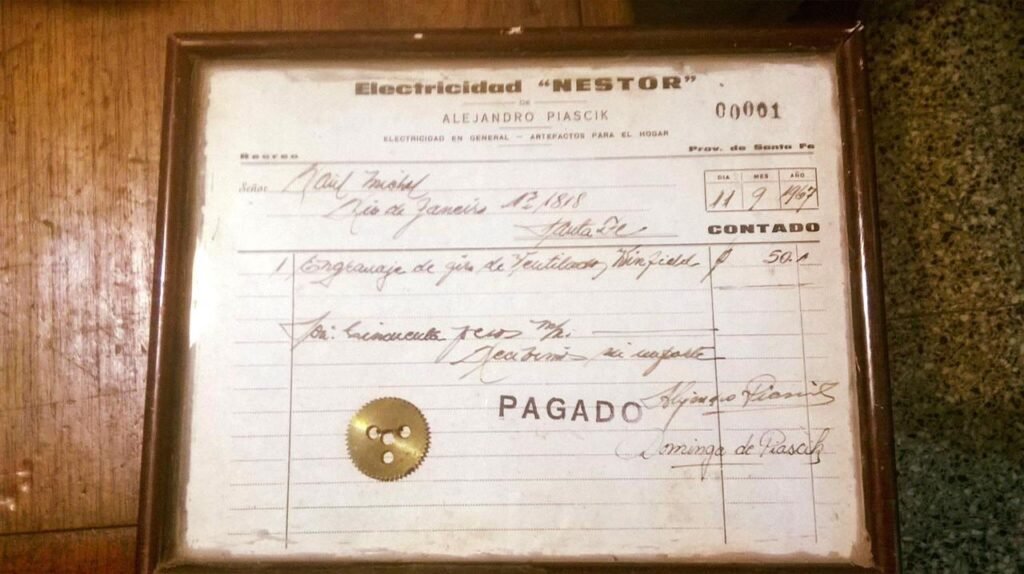 Electricidad "NESTOR"
DE
ALEJANDRO PIASCIK
00001
ELECTRICIDAD EN GENERAL - ARTEFACTOS PARA EL HOGAR
Recreo
Prov. de Santa Fe
Señor Raúl Michel
DIA MES AÑO
11 9 1967
Rio de Janeiro Nº 1818
Santa Fe
CONTADO
1 Engranaje de giro de Ventilador Winfield $ 50.-
Son: Cincuenta pesos m/n.
Recibimos su importe
PAGADO
Alejandro Piascik
Dominga de Piascik